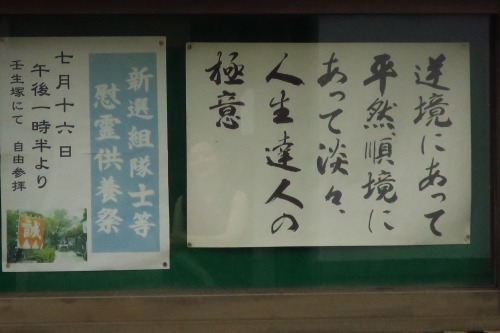 逆境にあって
平然、順境に
あって淡々、
人生達人の
極意
新選組隊士等
慰霊供養祭
七月十六日
午後一時半より
壬生塚にて 自由参拝
誠